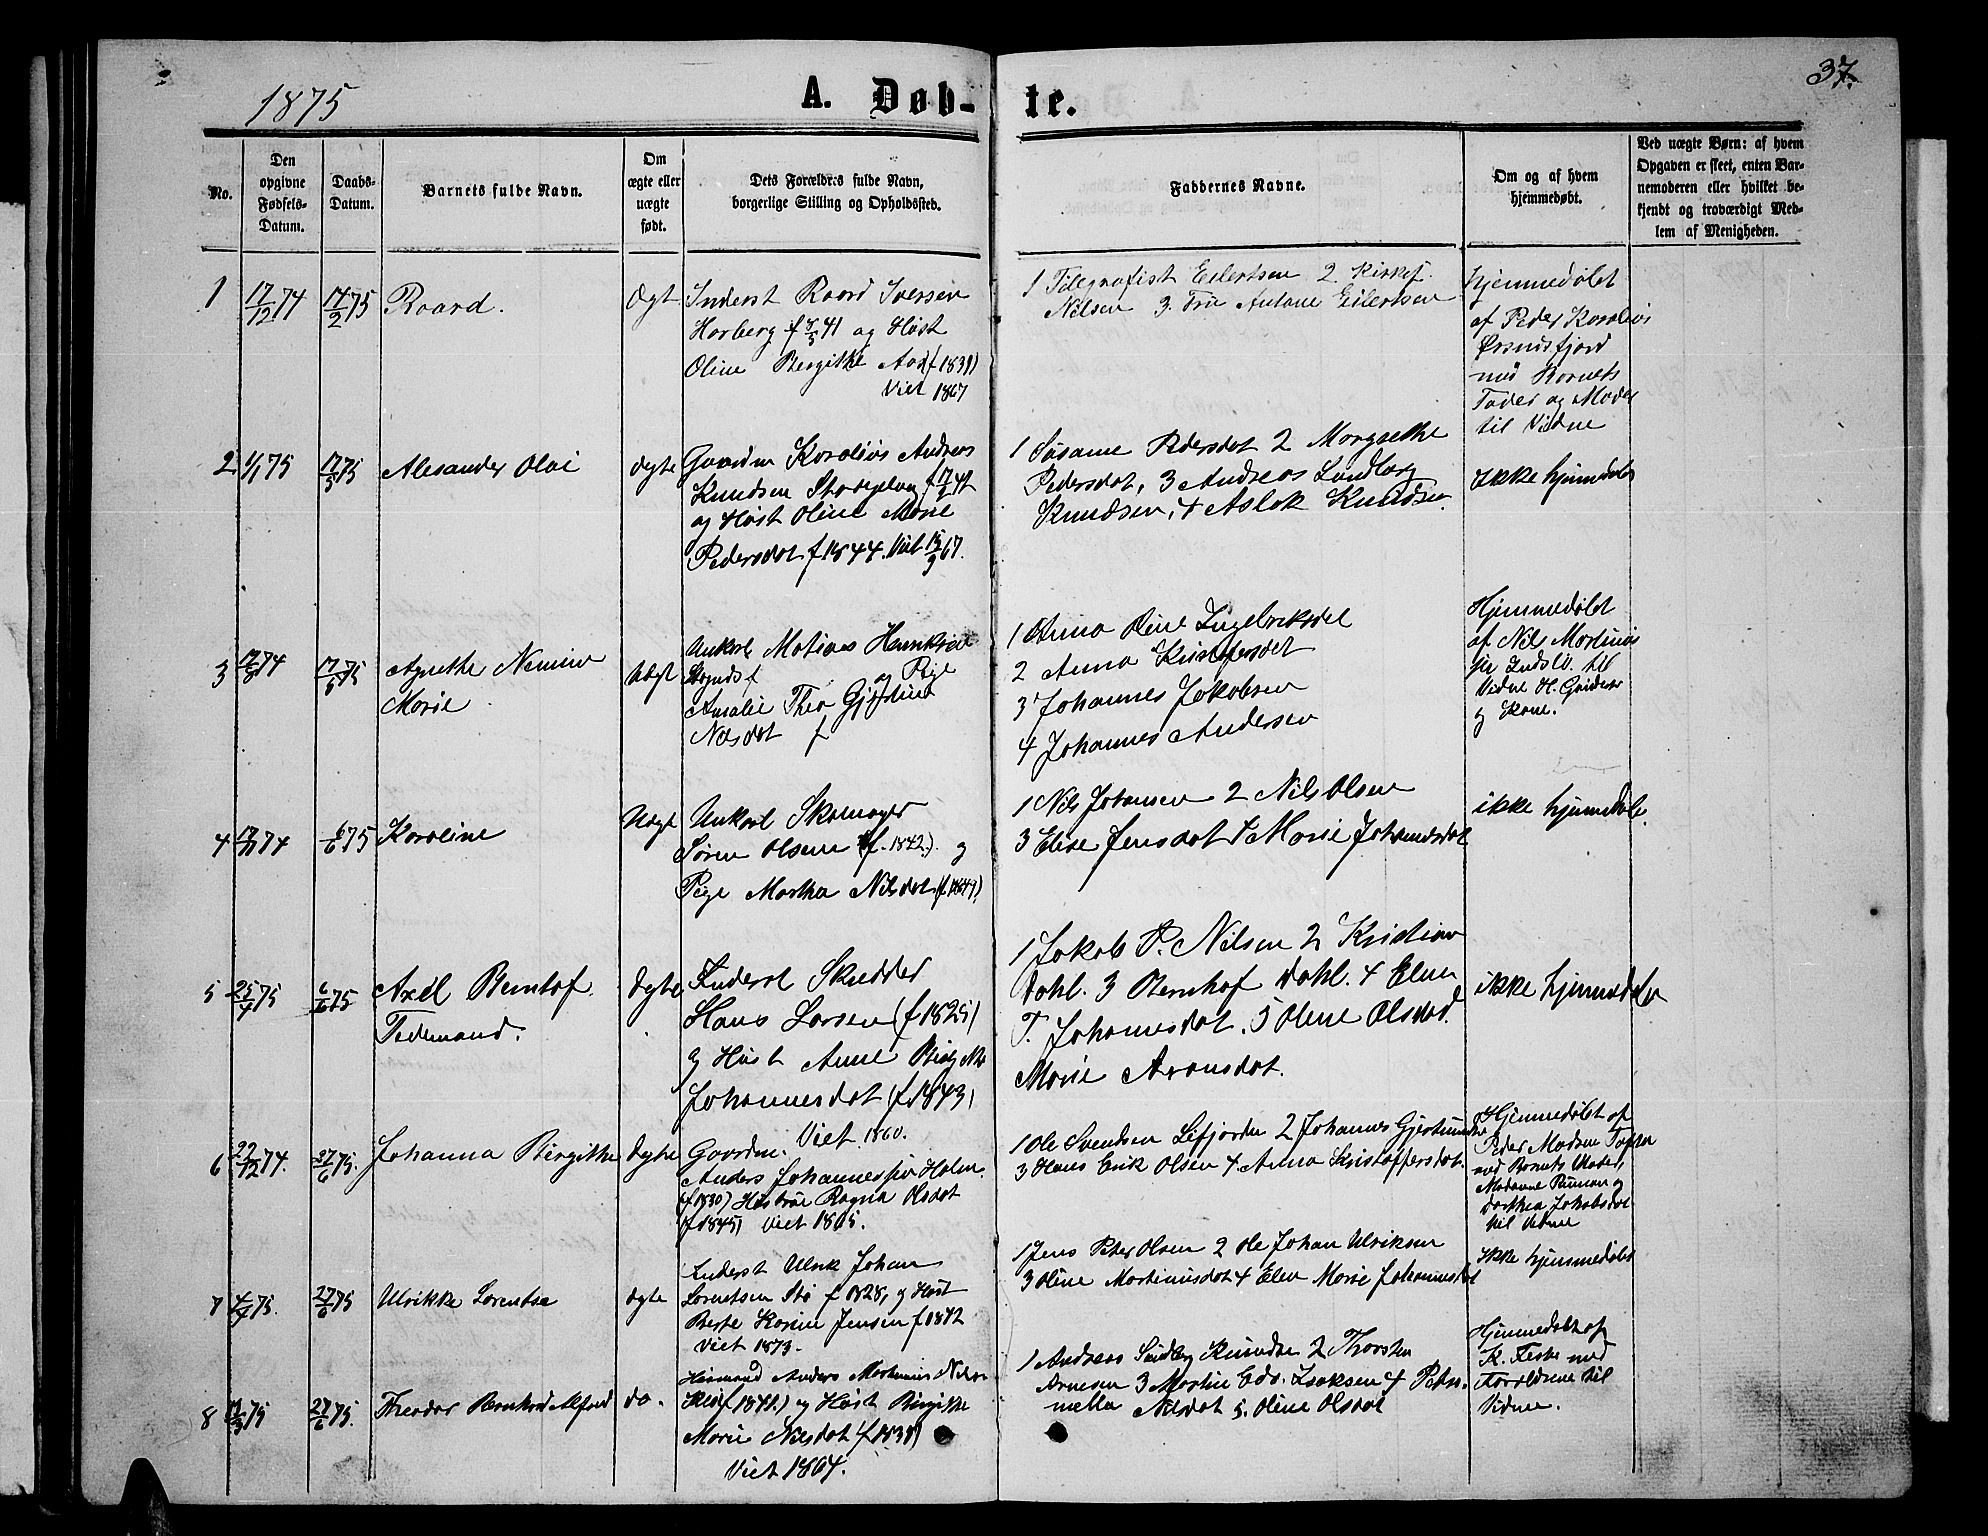 1875
A. Døb-
te.
37.
No.
Den
opgivne
Fødsels-
Datum.
Daabs-
Datum.
Barnets fulde Navn.
Om
ægte eller
uægte
født.
Dets Forældres fulde Navn,
borgerlige Stilling og Opholdssted.
Faddernes Navne.
Om og af hvem
hjemmedøbt.
Ved uægte Børn: af hvem
Opgaven er skeet, enten Bar-
nemoderen eller hvilket be-
kjendt og troværdigt Med-
lem af Menigheden.
1 17/12 74 14/2 75 Roard. Ægt
Inderst Roard Iversen
Horberg f 4/5 41 og Høst
Oline Bergitte (f 1839)
Viet 1867
1 Telegrafist Eilertsen 2 Kirkes.
Nilsen 3. Fru Antone Eilertsen
hjemmedøbt
af Peder Korelius
fjord
med Barnets
Fader og Moder
til Vidne
2 1/1 75 17/5 75 Alexander Olai Ægte
Gaardm Korelius Andreas
Knudsen f 17/2 41
og Høst Oline Marie
Pedersdot f 1844. Viet 15/9 67.
1 Susanne Pedersdot 2 Margrethe
Pedersdot, 3 Andreas Lundberg
Knudsen, 4 Aslak Knudsen.
Ikke hjemmedøbt
3 17/8 74 17/5 75 Agnethe Nemine Uægt
Marie
Unkarl Matias Henriksen
og Pige
Amalie Thea
Nilsdot f
1 Anna Oline Ingebriksdot
2 Anna Kristofersdot
3 Johannes Jakobsen
4 Johannes Andersen
Hjemmedøbt
af Nils Martinus
til
Vidne H.
og Kone.
4 17/11 74 6/6 75 Karoline Uægt
Unkarl Skomager
Søren Olsen (f. 1842.) og
Pige Martha Nilsdot (f 1849)
1 Nils Johansen 2 Nils Olsen
3 Elise Jensdot 4 Marie Johannesdot
ikke hjemmedøbt.
5 25/4 75 6/6 75 Axel Berntof Ægte
Tidemand.
Inderst Skredder
Hans Larsen (f 1825)
og Høst Anne
Johannesdot (f 1843)
Viet 1860.
1 Jakob P. Nilsen 2 Kristian
Dahl. 3 Bernhof Dahl. 4 Elen
T. Johannesdot. 5 Oline Olsdot.
Marie Aronsdot.
ikke hjemmedøbt
6 22/12 74. 27/6 75. Johanna Birgitte Ægte
Gaardm.
Anders Johannessen Holm.
(f 1830) Hustrue Ragna Olsdot
(f 1845) Viet 1865.
1 Ole Svendsen Lifjorden 2 Johannes
3 Hans Erik Olsen 4 Anna Kristoffersdot.
Hjemmedøbt af
Peder Madsen
med Barnets Moder,
Madame og
Dorthea Jakobsdot
til Vidne
7 4/4 75. 27/6 75 Ulrikke Lorentse Ægte
Inderst Ulrik Johan
Lorentsen Stø f 1828, og Høst
Berte Karine Jensen f 1842
Viet 1873.
1 Jens Peter Olsen 2 Ole Johan Ulriksen
3 Oline Martinusdot 4 Elen Marie Johannesdot
Ikke hjemmedøbt
8 11/5 75 27/6 75. Theodor Bernhard Alfred do.
Husmand Anders Martinius Nilsen
(f 1841.) og Høst Birgitte
Marie Nilsdot (f 1839)
Viet 1864.
1 Andreas Lundberg Knudsen 2 Thorsten
Arnesen 3 Martin Edv. Isaksen 4 Petri-
nella Nilsdot 5. Oline Olsdot
Hjemmedøbt af
K. Feste med
Forældrene til
Vidne.